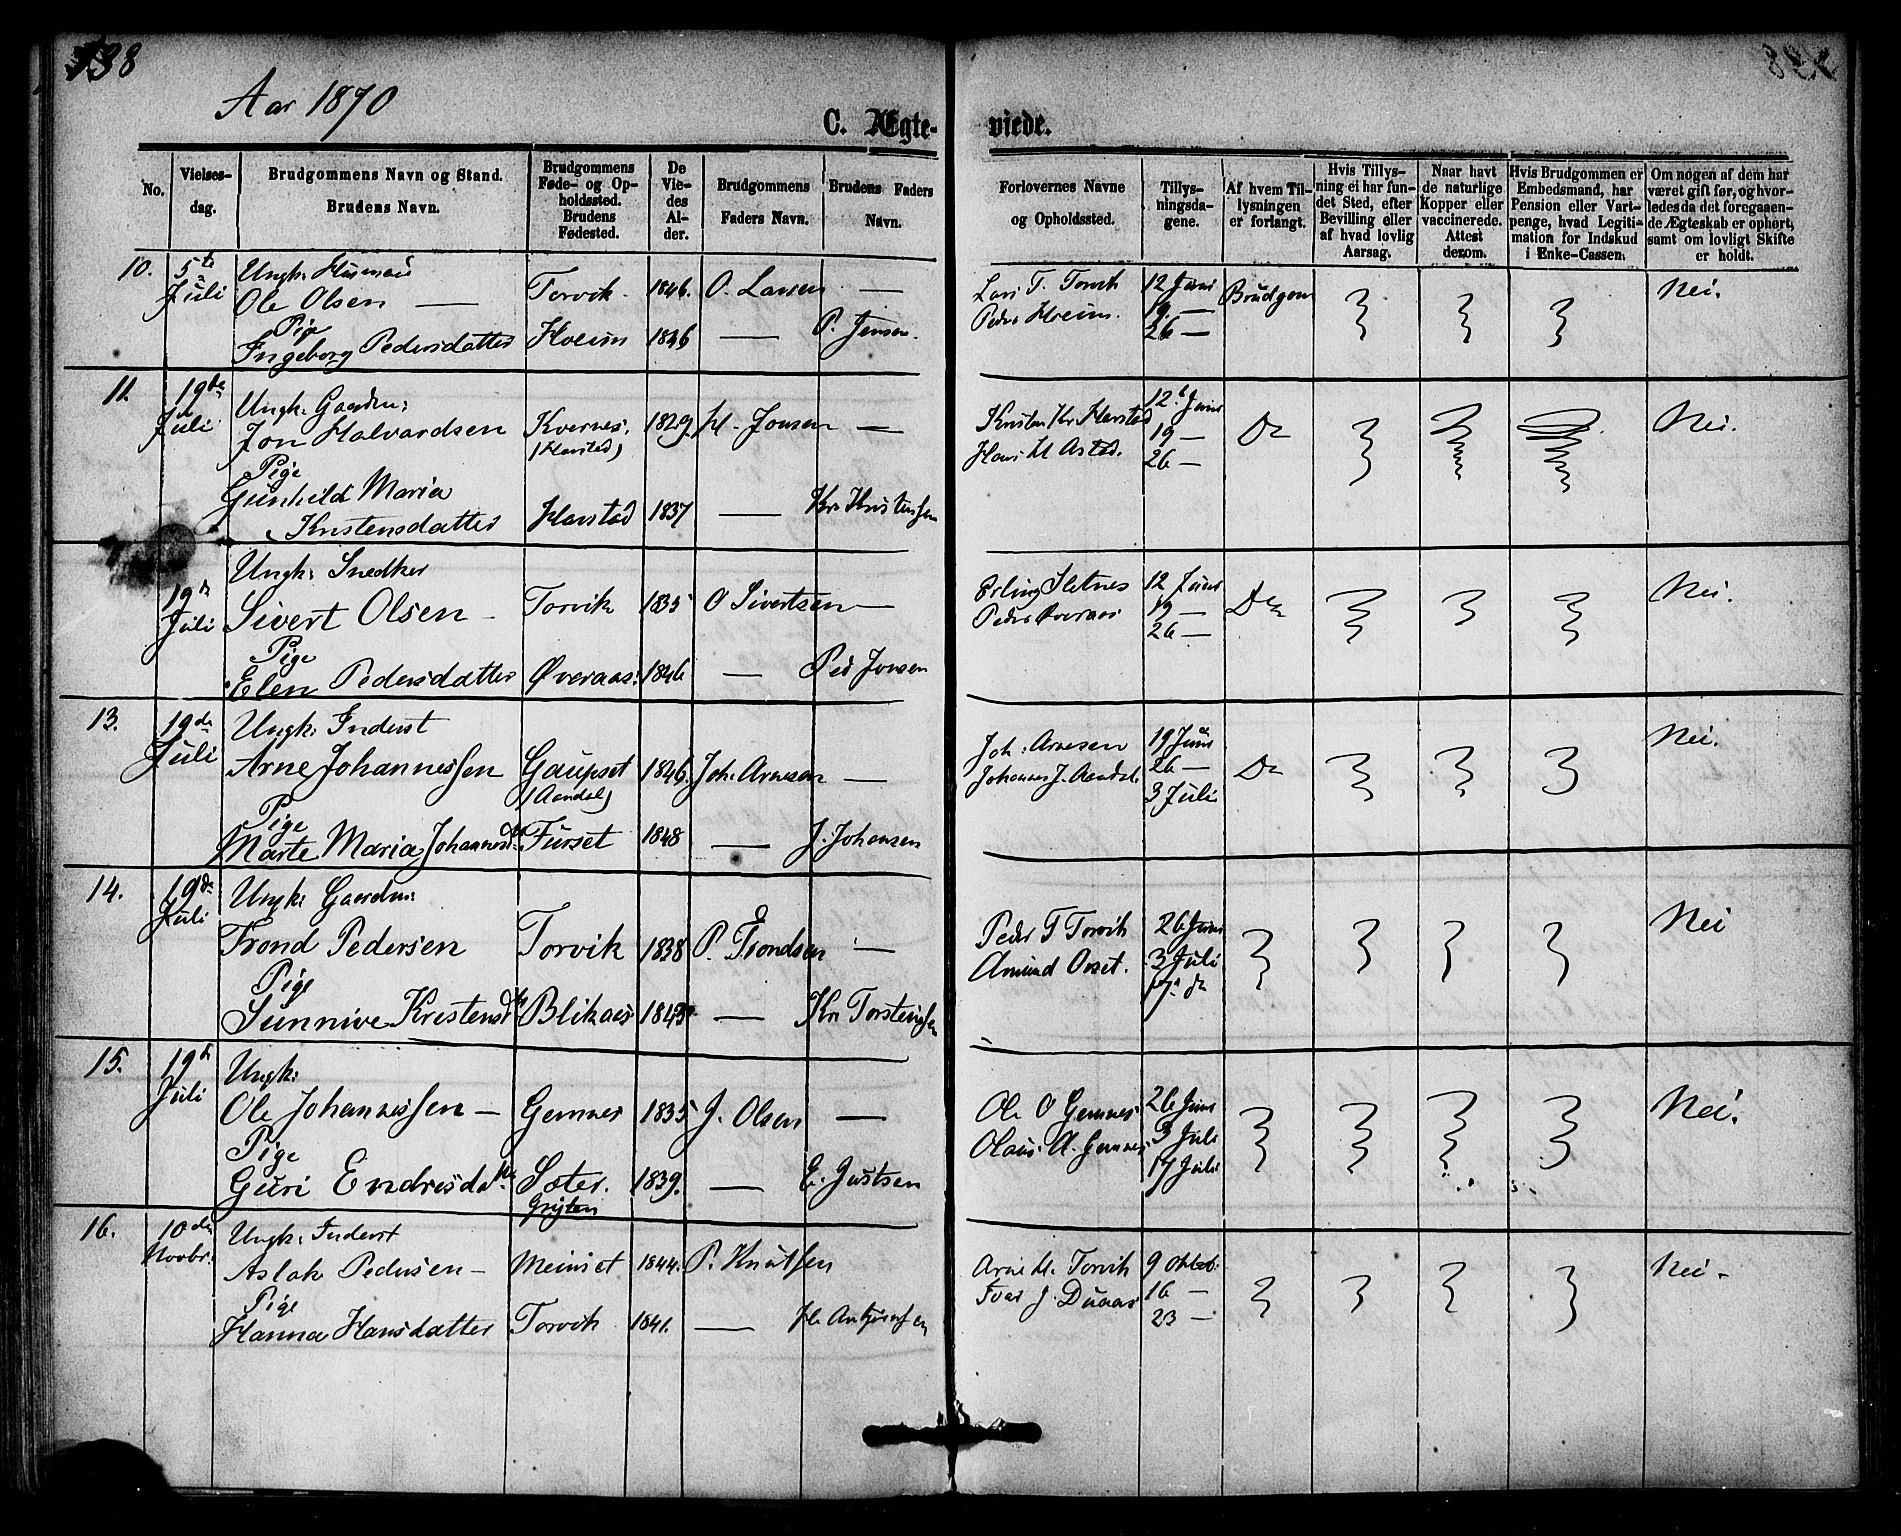 138
Aar 1870
C. Ægteviede.
No.
Vielsesdag.
Brudgommens Navn og Stand.
Brudens Navn.
Brudgommens Føde- og Opholdssted.
Brudens Fødested.
De Viedes Alder.
Brudgommens Faders Navn.
Brudens Faders Navn.
Forlovernes Navne og Opholdssted.
Tillysningsdagene.
Af hvem Tillysningen er forlangt.
Hvis Tillysning ei har fundet Sted, efter Bevilling eller af hvad lovlig Aarsag.
Naar havt de naturlige Kopper eller vaccinerede. Attest derom.
Hvis Brudgommen er Embedsmand, har Pension eller Vartpenge, hvad Legitimation for Indskud i Enke-Cassen.
Om nogen af dem har været gift før, og hvorledes da det foregaaende Ægteskab er ophørt, samt om lovligt Skifte er holdt.
10. 5te Juli Ungk: Husmand
Ole Olsen — Torvik 1846. O. Larsen —
Pige
Ingeborg Pedersdatter Hoem 1846 — P. Jensen
Lars T. Torvik 12 Juni Brudgom Nei.
Peder Hoem. 19 —
26 —
11. 19de Juli Ungk: Gaardm:
Jon Halvardsen Kvernes. (Harstad) 1829 H. Jonsen —
Pige
Gunhild Maria
Kristensdatter Harstad 1837 — Kr. Kristensen
Kristen Kr Harstad 12t Juni Do Nei.
Hans H Astad. 19 —
26 —
19de Juli Ungk: Snedker
Sivert Olsen — Torvik 1835 O Sivertsen —
Pige
Elen Pedersdatter Øveraas: 1846 — Ped Jonsen
Erling Sletnes 12 Juni Do Nei.
Peder Øveraas 19 —
26 —
13. 19de Juli Ungk: Inderst
Arne Johannessen Gaupset (Aandal) 1846. Joh: Arnesen —
Pige
Marte Maria Johannesdtr. Furset 1848 — J. Johansen
Joh: Arnesen 19 Juni Do Nei.
Johannes J. Aandal. 26 —
3 Juli
14. 19de Juli Ungk: Gaardm:
Trond Pedersen Torvik 1838 P. Trondsen —
Pige
Sunnive Kristensdtr Blikaas 1843 — Kr Torstensen
Peder T Torvik 26 Juni Nei
Amund Orset. 3 Juli
17. do
15. 19de Juli Ungk:
Ole Johannessen — Gemnes 1835 J. Olsen —
Pige
Guri Endresdatter Sæter. 1839. — E. Justsen
Ole O Gemnes 26 Juni Nei.
Olaus A. Gemnes 3 Juli
17 Juli
16. 10de Novbr. Ungk: Inderst
Aslak Pedersen — Meisset 1844. P. Knutsen
Pige
Hanna Hansdatter Torvik 1841. —
Arne H. Torvik 9 Oktob: Nei.
Iver J. Duaas 16 —
23 —